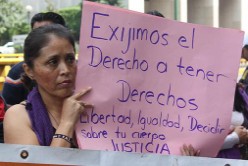 Exijimos el
Derecho a tener
Derechos
Libertad, Igualdad, Decidir
sobre tu cuerpo
JUSTICIA